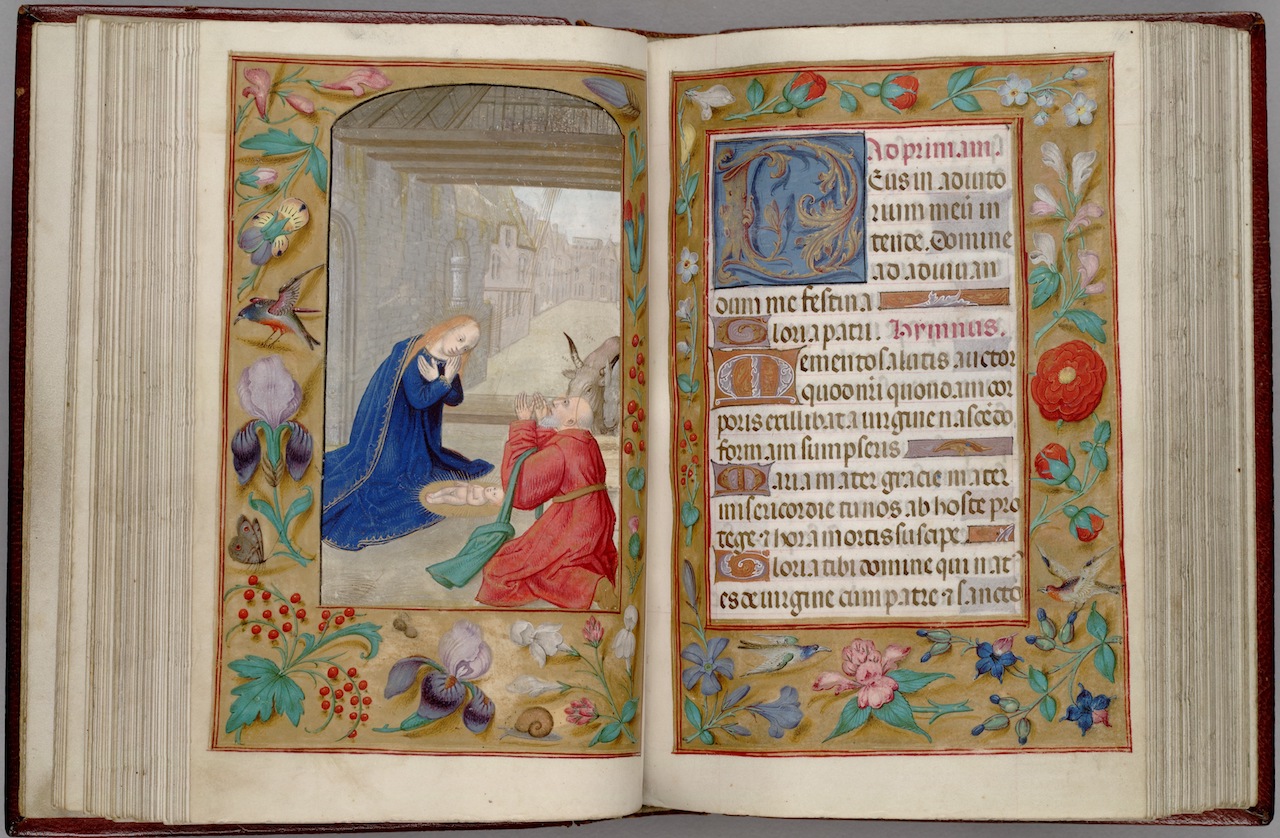 Ad primam.
Deus in adiuto
rium meū in
tende. Domine
ad adiuuan
dum me festina
Gloria patri. Hymnus.
Memento salutis auctor
quod nr̄i quondam cor
poris ex illibata uirgine nascēdo
formam sumpseris
Maria mater gracie mater
misericordie tu nos ab hoste pro
tege ⁊ hora mortis suscipe
Gloria tibi domine qui nat᾿
es de uirgine cum patre ⁊ sancto